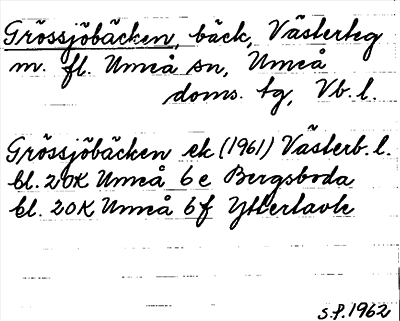 Grössjöbäcken, bäck, Västerteg
m. fl. Umeå sn, Umeå
doms. tg, Vb. l.
Grössjöbäcken ek (1961) Västerb. l.
bl. 20K Umeå 6e Bergsboda
bl. 20K Umeå 6f Yttertavle
S.f. 1962